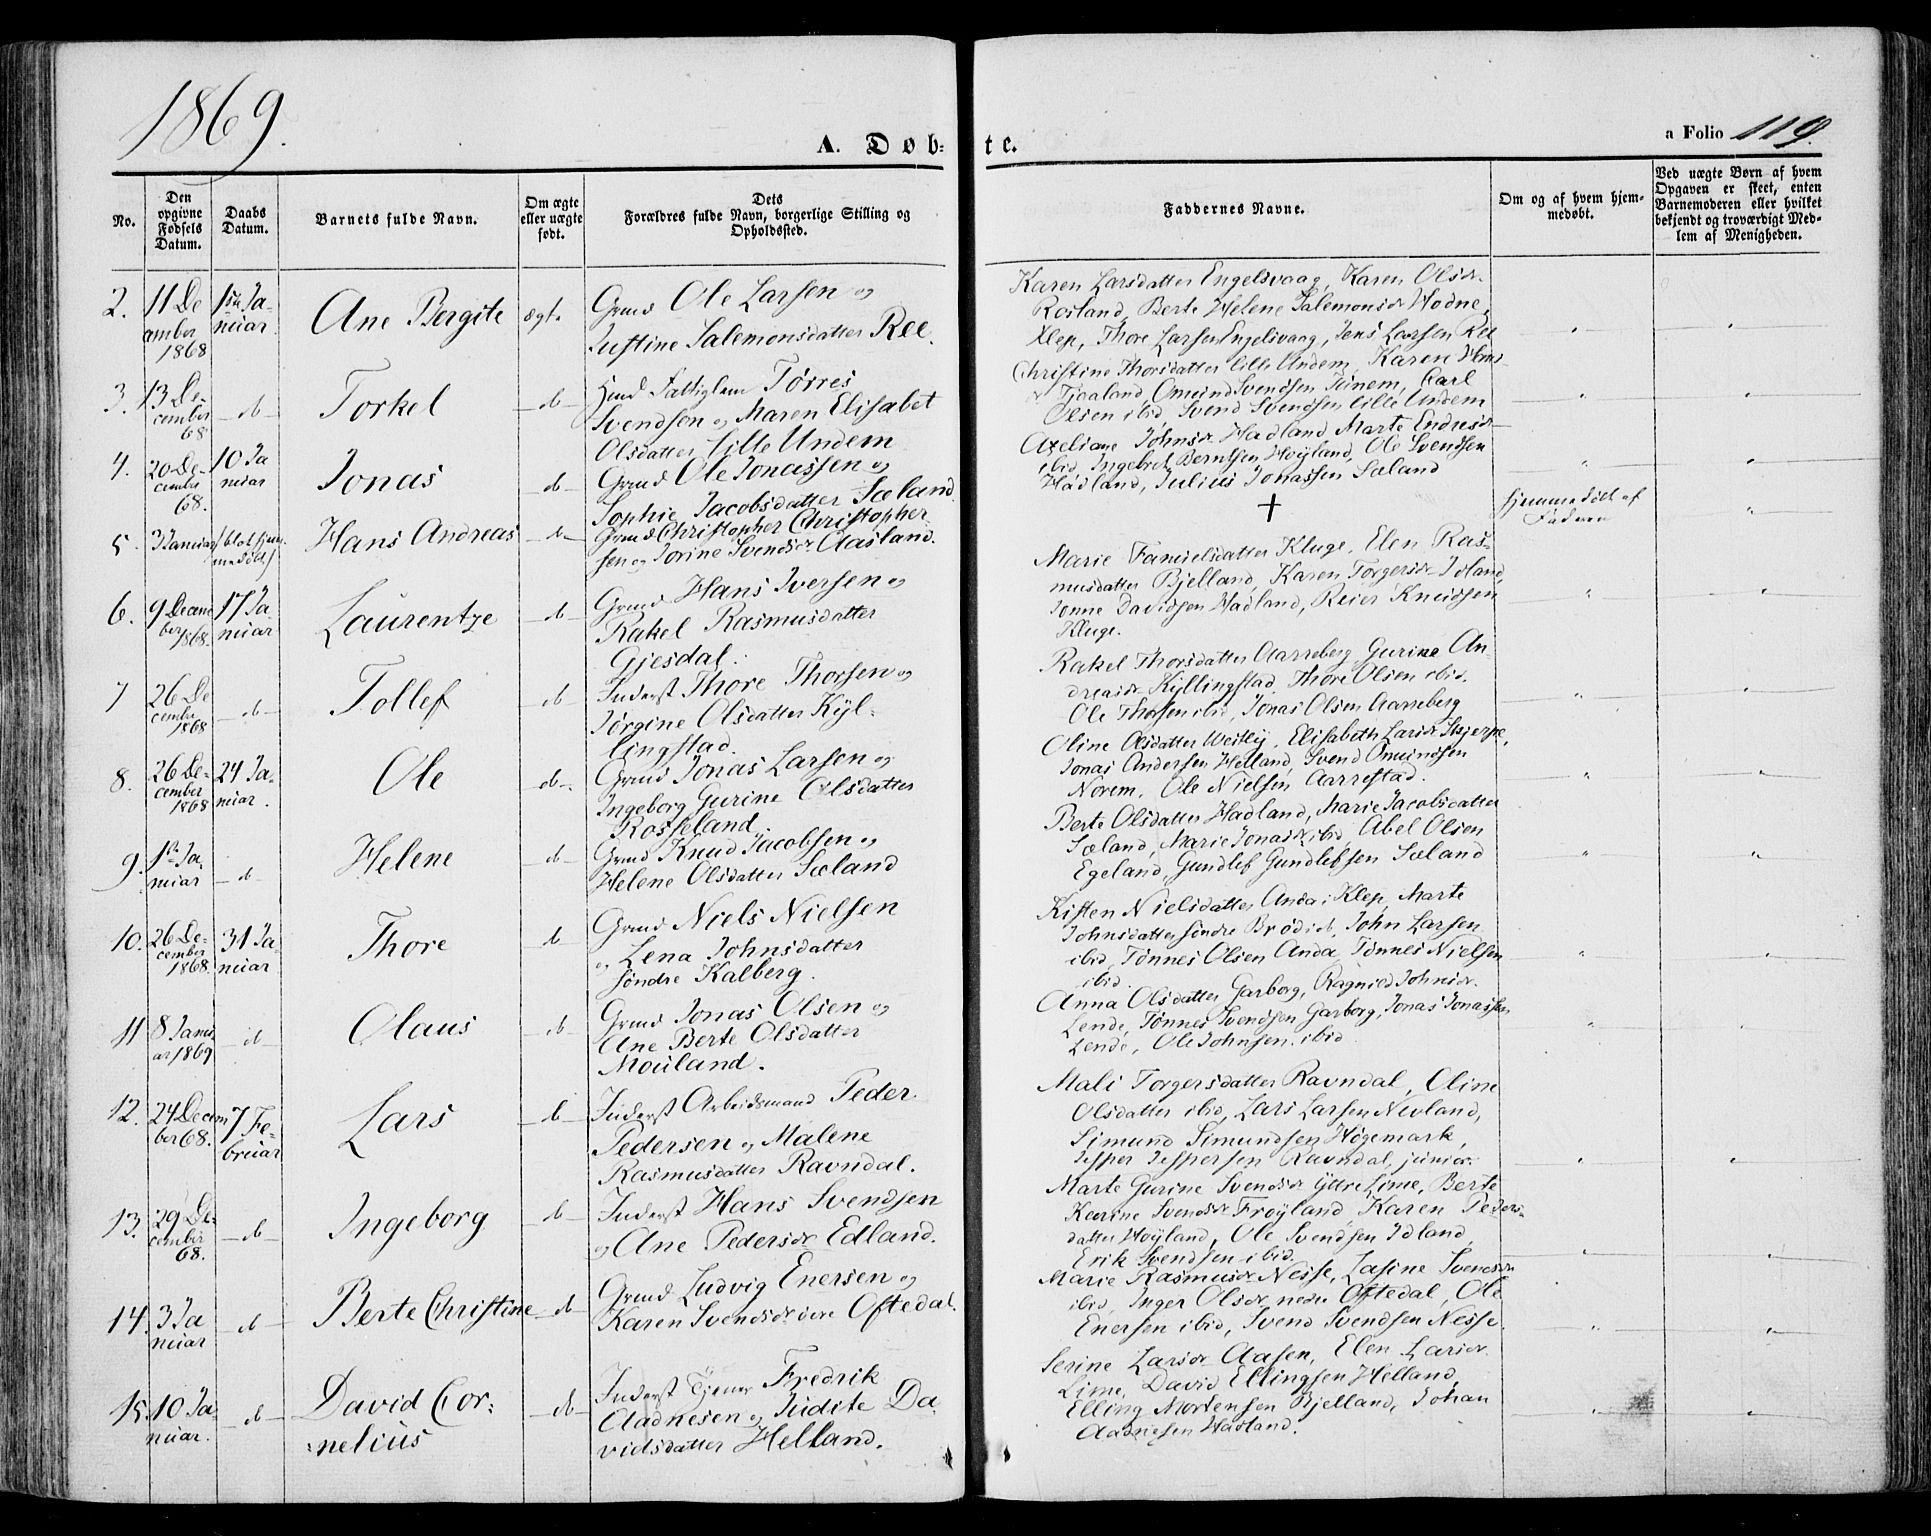 1869.
A. Døb-
te.
a Folio 119.
No.
Den opgivne Fødsels Datum.
Daabs Datum.
Barnets fulde Navn.
Om ægte eller uægte født.
Dets Forældres fulde Navn, borgerlige Stilling og Opholdssted.
Faddernes Navne.
Om og af hvem hjem-
medøbt.
Ved uægte Børn af hvem
Opgaven er skeet, enten
Barnemoderen eller hvilket
bekjendt og troværdigt Med-
lem af Menigheden.
2. 11 De cember 1868
1ste Ja- nuar
Ane Bergite
ægt.
Grmd Ole Larsen og
Justine Salemonsdatter Ree.
Karen Larsdatter Engelsvaag, Karen Olsdr
Rosland, Berte Helene Salemonsdr Hodne,
Klep, Thore Larsen Engelsvaag, Jens Larsen Ree
3. 13 De- cember 68
- d -
Torkel
- d -
Tørres
Svendsen og Maren Elisabet
Olsdatter Lille Undem
Christine Thorsdatter lille Undem, Karen
Tjaaland, Omund Svendsen Tunem, Carl
Olsen ibid, Svend Svendsen lille Undem
4. 20 De- cember 68.
10 Ja nuar
Jonas
- d -
Grmd Ole Jonassen og
Sophie Jacobsdatter Sæland
Axeliane Johnsdr Hadland, Marte Endresdr
ibid, Ingebret Berntsen Høyland, Ole Svendsen
Hadland, Julius Jonassen Sæland
5. 3 Januar
(blot hjem- medøbt)
Hans Andreas
- d -
Grmd Christopher Christopher-
sen og Jorine Svendsdr Aasland.
+
hjemmedøbt af
Faderen
6. 9 Decem ber 1868.
17 Ja nuar
Laurentze
- d -
Grmd Hans Iversen og
Rakel Rasmusdatter
Gjesdal.
Marie Danielsdatter Kluge, Elen Ras-
musdatter Bjelland, Karen Torgersdr Idland,
Jonne Davidsen Hadland, Reier Knudsen
Kluge.
7 26 De cember 1868
- d -
Tollef
d
Inderst Thore Thorsen og
Jørgine Olsdatter Kyl-
lingstad.
Rakel Thorsdatter Aarreberg Gurine An-
dreasdr Kyllingstad, Thore Olsen ibid.
Ole Thorsen ibid, Jonas Olsen Aarreberg
8. 26 De- cember 1868
24 Ja- nuar.
Ole
- d -
Grmd Jonas Larsen og
Ingeborg Gurine Olsdatter
Rosseland.
Oline Olsdatter Westly, Elisabeth Larsdr Skjerpe,
Jonas Andersen Helland, Svend Omundsen
Norem, Ole Nielsen Aarrestad.
9. 1ste Ja nuar
- d -
Helene
- d -
Grmd Knud Jacobsen og
Helene Olsdatter Sæland
Berte Olsdatter Hadland, Marie Jacobsdatter
Sæland, Marie Jonasdr ibid, Abel Olsen
Egeland, Gundlef Gundlefsen Sæland
10. 26 De- cember 1868.
31 Ja- nuar
Thore
d
Grmd Niels Nielsen
og Lena Johnsdatter
søndre Kalberg.
Kisten Nielsdatter Anda i Klep, Marte
Johnsdatter søndre Brødid, John Larsen
ibid, Tønnes Olsen Anda, Tønnes Nielsen
ibid.
11 8 Janu- ar 1869
- d -
Olaus
- d -
Grmd Jonas Olsen og
Ane Berte Olsdatter
Mouland.
Anna Olsdatter Garborg, Ragnild Johnsdr
Lende, Tønnes Svendsen Garborg, Jonas Jonassen
Lende, Ole Johnsen ibid
12. 24 Decem ber 68.
7 Fe- bruar
Lars
- d -
Inderst Arbeidsmand Peder
Pedersen og Malene
Rasmusdatter Ravndal.
Mali Torgersdatter Ravndal, Oline
Olsdatter ibid, Lars Larsen Nevland,
Simund Simundsen Høgemark,
Jesper Jespersen Ravndal, junior
13. 29 De- cember 68.
- d -
Ingeborg
- d -
Inderst Hans Svendsen
og Ane Pedersdr Edland.
Marte Gurine Svendsdr Yttre Lime, Berte
Karine Svendsdr Frøyland Karen Peders-
datter Høyland, Ole Svendsen Idland
Erik Svendsen ibid.
14. 3 Ja nuar
- d -
Berte Christine
- d -
Grmd Ludvig Enersen og
Karen Svendsdr øvre Oftedal.
Marie Rasmusdr Nesse, Lasine Svendsdr
ibid, Inger Olsdr nedre Oftedal, Ole
Enersen ibid, Svend Svendsen Nesse.
15. 10 Ja- nuar.
- d -
David Cor-
nelius
- d -
Inderst Tjener Fredrik
Aadnesen og Judite Da-
vidsdatter Helland.
Serine Larsdr Aasen, Elen Larsdr
Lime, David Ellingsen Helland,
Elling Mortensen Bjelland, Johan
Aadnesen Hadland.